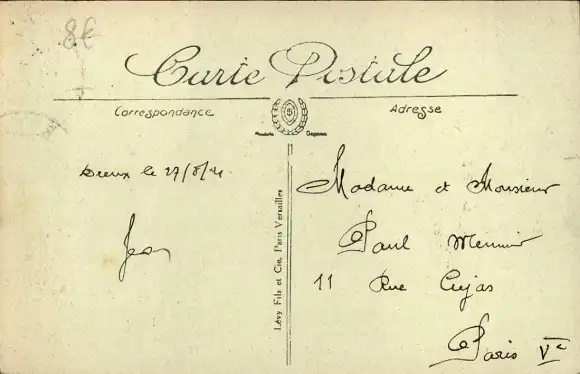 8€
Carte Postale
Correspondance
Adresse
Dreux le 27/8/21
Jean
Lévy Fils et Cie, Paris Versailles
Madame et Monsieur
Paul Meunier
11 Rue Cujas
Paris Ve